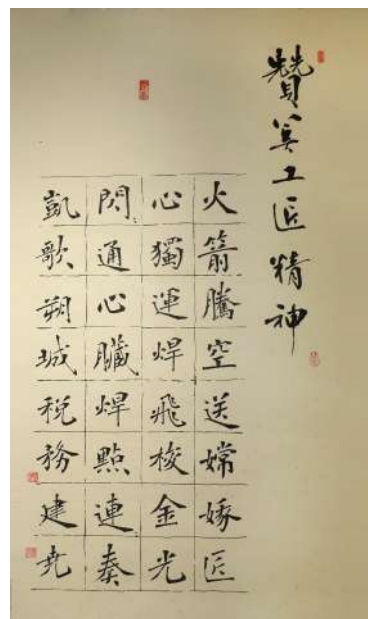 贊美工匠精神
火箭騰空送嫦娥匠
心獨運焊飛梭金光
閃通心臟焊點連奏
凱歌朔城稅務建堯